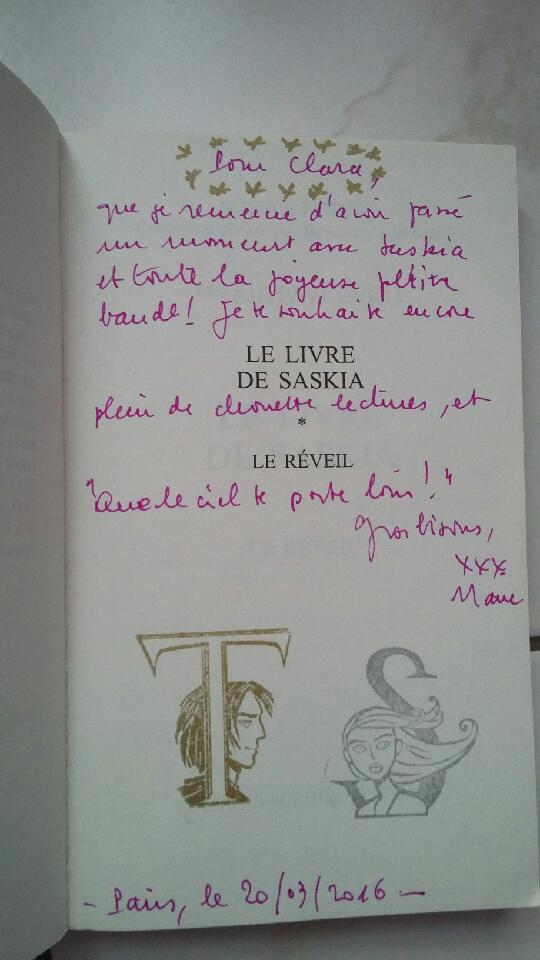 Pour Clara,
que je remercie d'avoir passé
un moment avec Saskia
et toute la joyeuse petite
bande! Je te souhaite encore
LE LIVRE
DE SASKIA
plein de chouette lectures, et
*
LE RÉVEIL
"Que le ciel te porte loin!"
Gros bisous,
xxx
Marie
T S
- Paris, le 20/03/2016 -